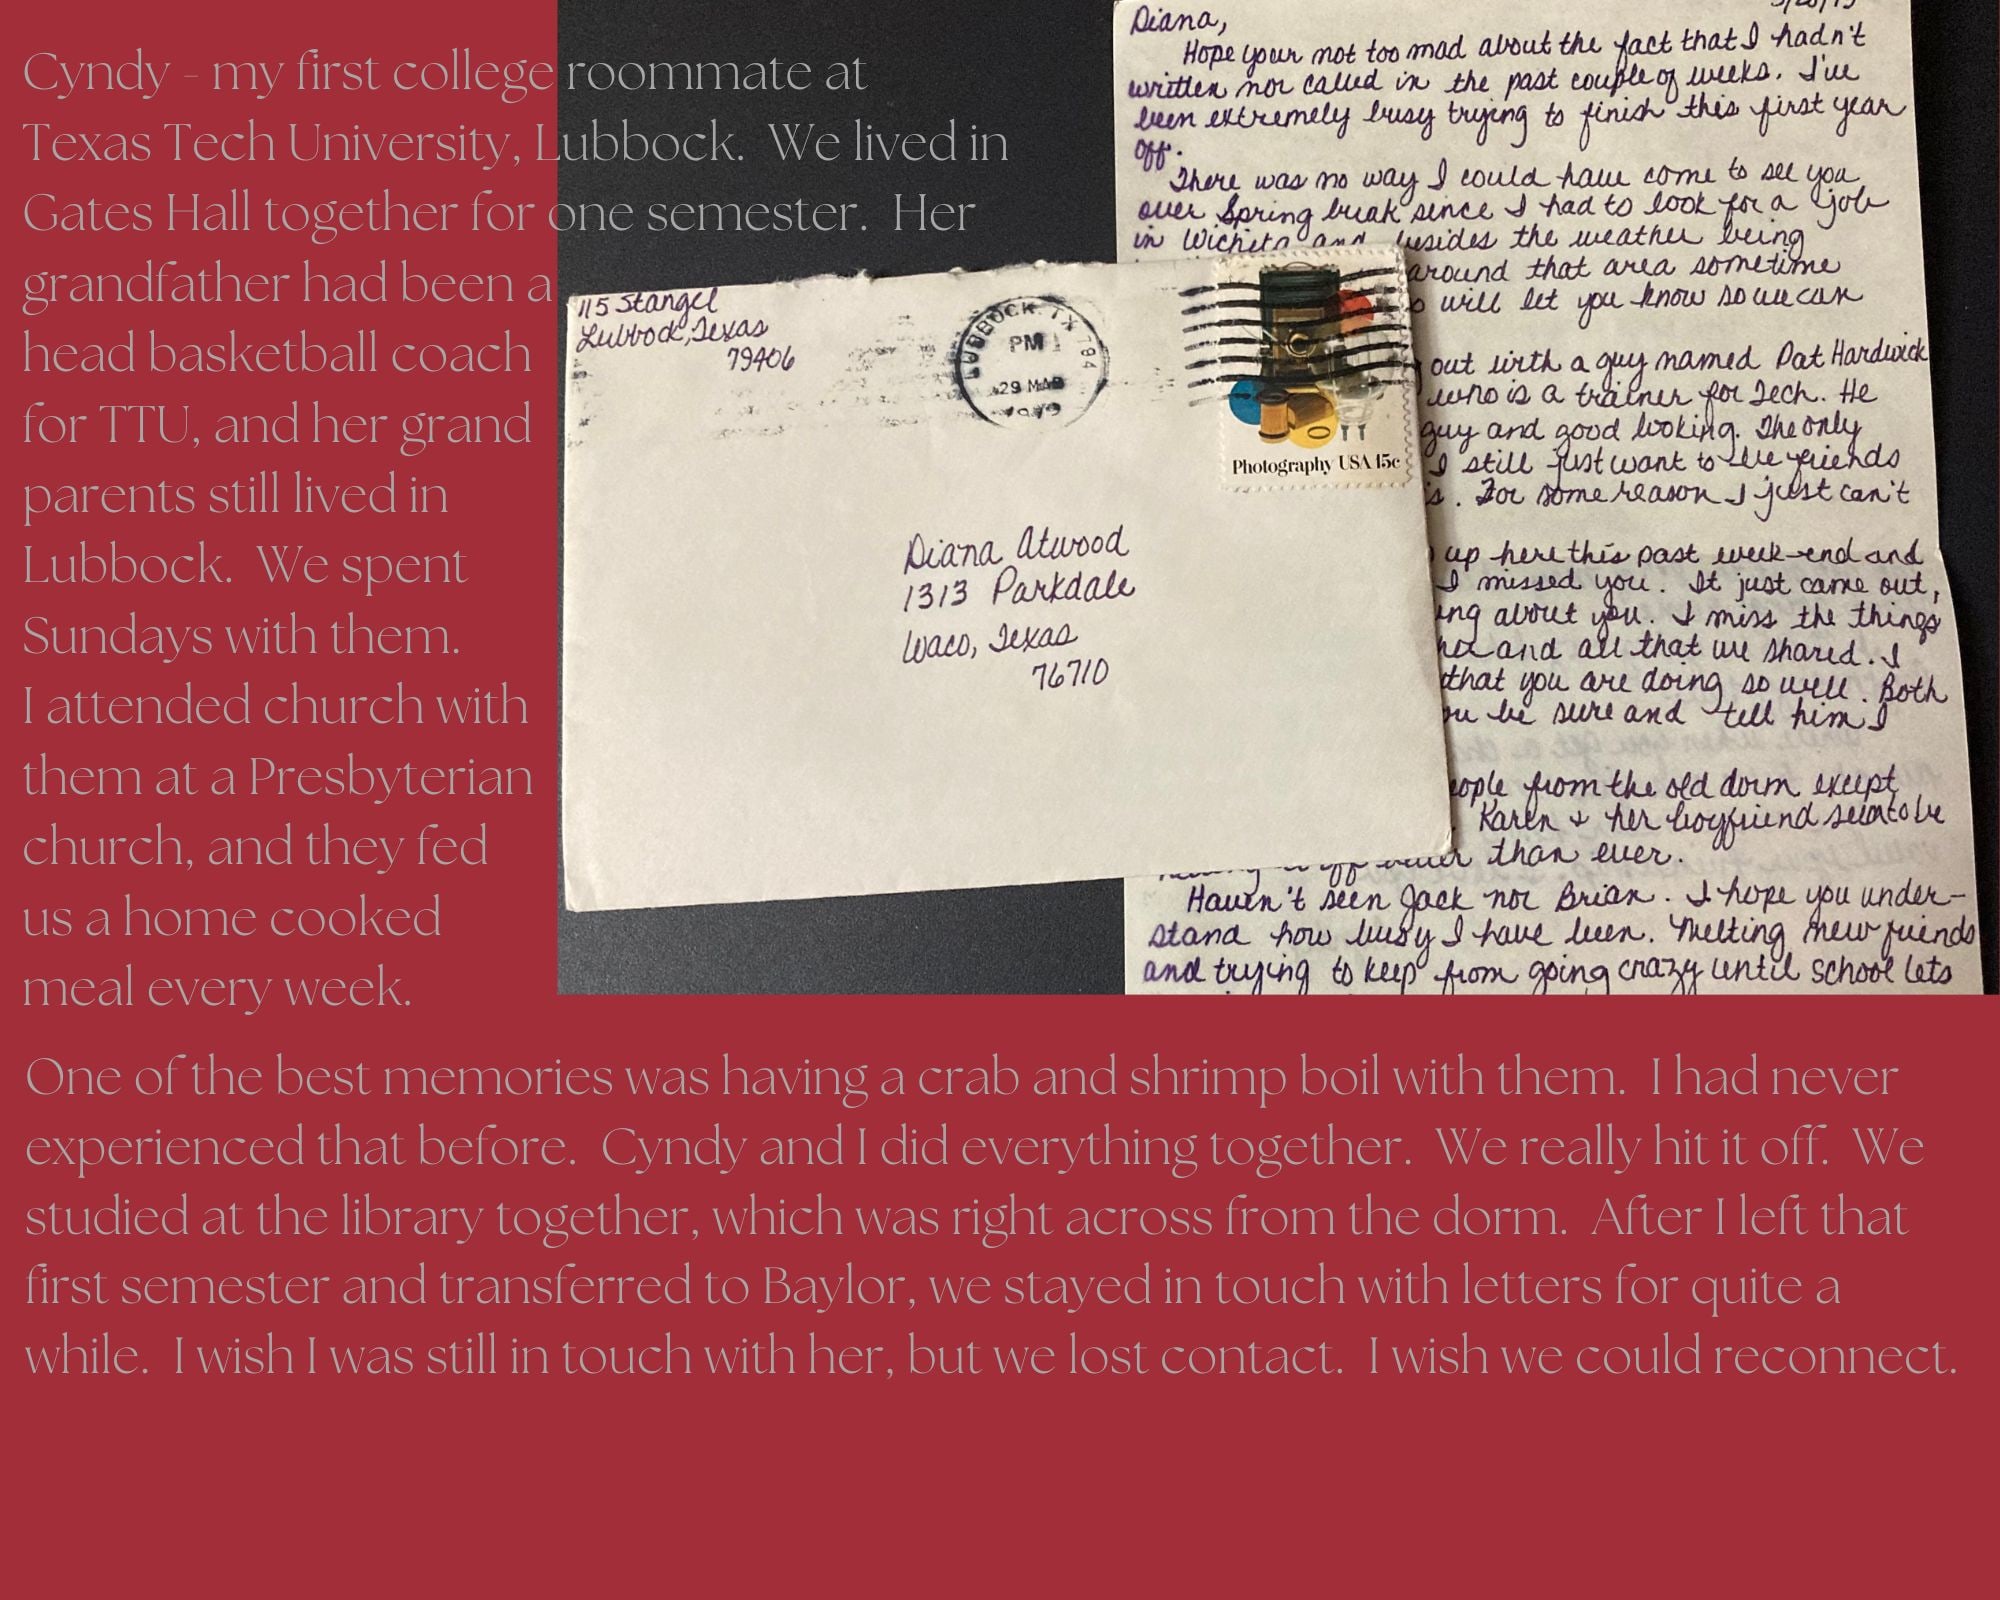 Cyndy - my first college roommate at
Texas Tech University, Lubbock. We lived in
Gates Hall together for one semester. Her
grandfather had been a
head basketball coach
for TTU, and her grand
parents still lived in
Lubbock. We spent
Sundays with them.
I attended church with
them at a Presbyterian
church, and they fed
us a home cooked
meal every week.
One of the best memories was having a crab and shrimp boil with them. I had never
experienced that before. Cyndy and I did everything together. We really hit it off. We
studied at the library together, which was right across from the dorm. After I left that
first semester and transferred to Baylor, we stayed in touch with letters for quite a
while. I wish I was still in touch with her, but we lost contact. I wish we could reconnect.
115 Stangel
Lubbock, Texas
79406
LUBBOCK, TX 794
PM
29 MAR
1979
Photography USA 15c
Diana Atwood
1313 Parkdale
Waco, Texas
76710
Diana,
Hope your not too mad about the fact that I hadn't
written nor called in the past couple of weeks. I've
been extremely busy trying to finish this first year
off.
There was no way I could have come to see you
over Spring break since I had to look for a job
in Wichita and besides the weather being
around that area sometime
will let you know so we can
out with a guy named Pat Hardwick
who is a trainer for Tech. He
guy and good looking. The only
I still just want to be friends
For some reason I just can't
up here this past week-end and
I missed you. It just came out,
about you. I miss the things
and all that we shared. I
that you are doing so well. Both
be sure and tell him I
from the old dorm except
Karen & her boyfriend seem to be
better than ever.
Haven't seen Jack nor Brian. I hope you under-
stand how busy I have been. Meeting new friends
and trying to keep from going crazy until school lets